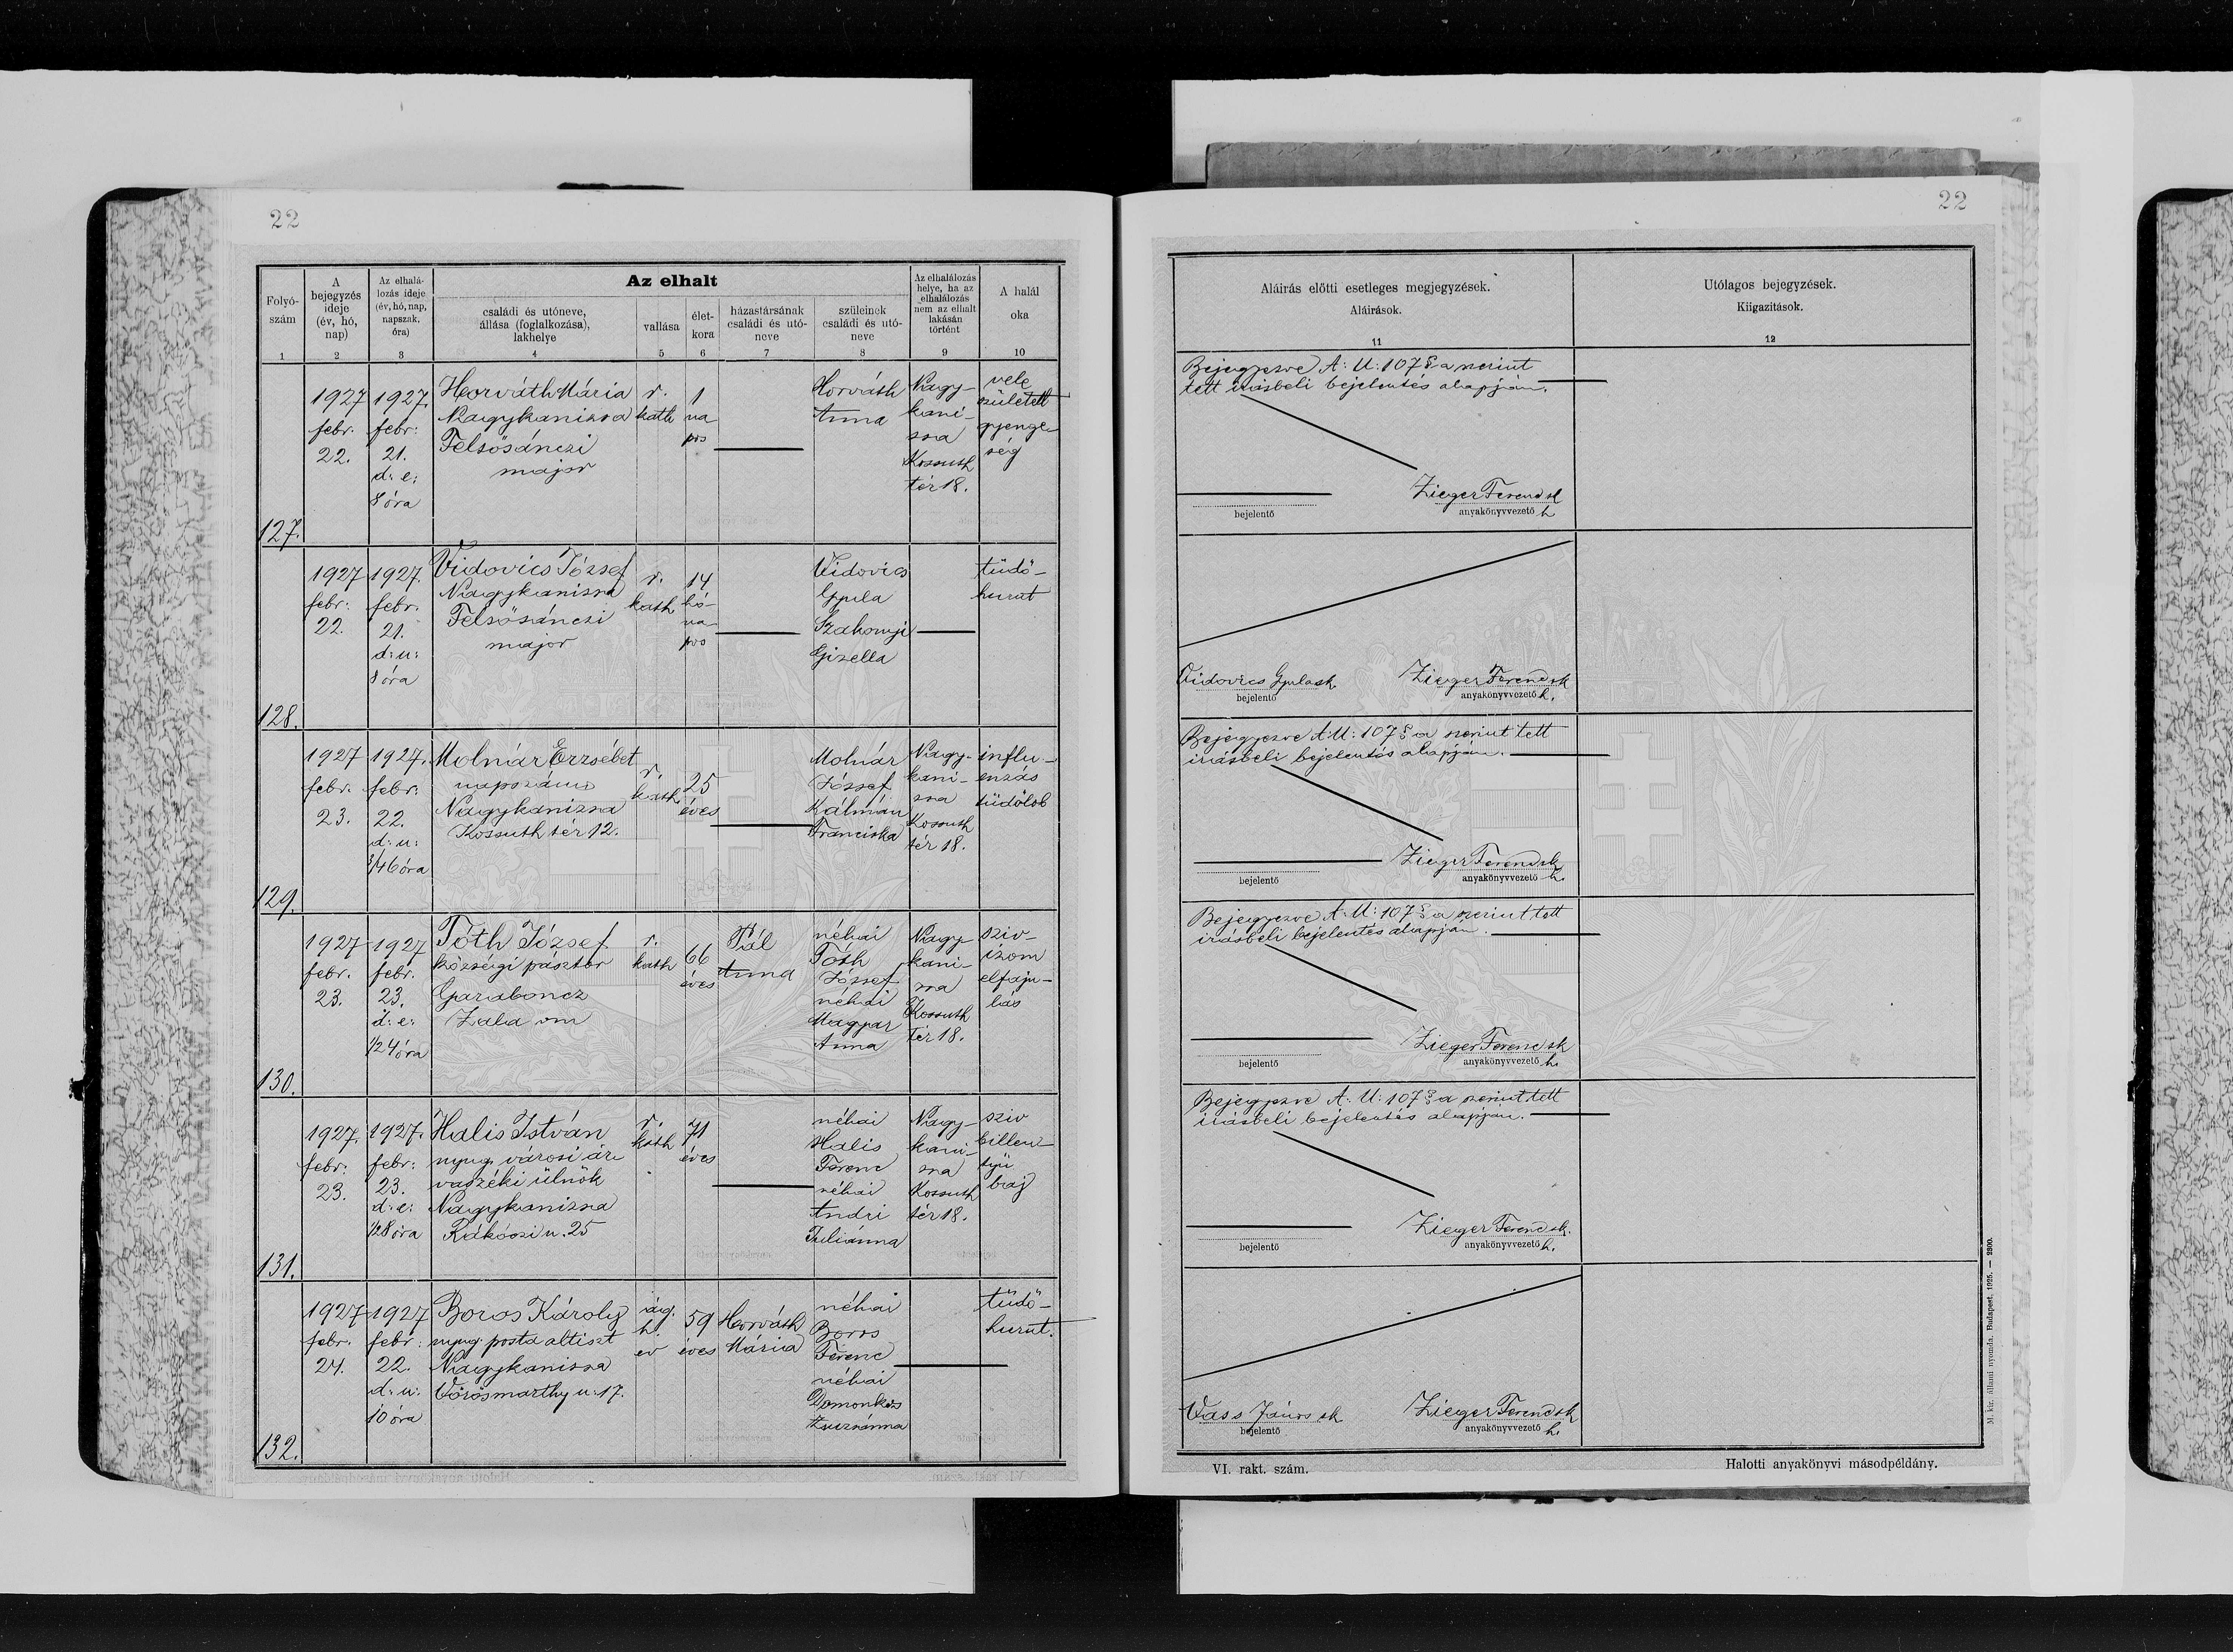 22
22
Az elhalt
Folyó-
szám
A
bejegyzés
ideje
(év, hó,
nap)
Az elhalá-
lozás ideje
(év, hó, nap,
napszak,
óra)
családi és utóneve,
állása (foglalkozása),
lakhelye
vallása
élet-
kora
házastársának
családi és utó-
neve
szüleinek
családi és utó-
neve
Az elhalálozás
helye, ha az
elhalálozás
nem az elhalt
lakásán
történt
A halál
oka
1
2
3
4
5
6
7
8
9
10
127.
1927
febr.
22.
1927.
febr:
21.
d: e:
8 óra
Horváth Mária
Nagykanizsa
Felsősánczi
major
r.
kath
1
na
pos
Horváth
Anna
Nagy-
kani-
zsa
Kossuth
tér 18.
vele
született
gyenge
ség
128.
1927
febr:
22.
1927.
febr.
21.
d: u:
8 óra
Vidovics József
Nagykanizsa
Felsősánczi
major
r.
kath
14
hó-
na
pos
Vidovics
Gyula
Szakonyi
Gizella
tüdő-
hurut
129.
1927
febr.
23.
1927.
febr.
22.
d: u:
3/4 6 óra
Molnár Erzsébet
napszámos
Nagykanizsa
Kossuth tér 12.
r.
kath
25
éves
Molnár
József
Kálmán
Franciska
Nagy-
kani-
zsa
Kossuth
tér 18.
influ-
enzás
tüdőlob
130.
1927
febr.
23.
1927
febr.
23.
d: e:
1/2 4 óra
Tóth József
községi pásztor
Garaboncz
Zala vm
r.
kath
66
éves
Pál
Anna
néhai
Tóth
József
néhai
Magyar
Anna
Nagy-
kani-
zsa
Kossuth
tér 18.
sziv-
izom
elfaju-
lás
131.
1927.
febr:
23.
1927.
febr:
23.
d: e:
1/2 8 óra
Halis István
nyug. városi ár
vaszéki ülnök
Nagykanizsa
Rákóczi u. 25
r.
kath
71
éves
néhai
Halis
Ferenc
néhai
Andri
Juliánna
Nagy-
kani-
zsa
Kossuth
tér 18.
sziv
billen-
tyü
baj
132.
1927
febr.
24.
1927
febr.
22.
d: u:
10 óra
Boros Károly
nyug. posta altiszt
Nagykanizsa
Vörösmarthy u. 17.
ág.
h.
ev
59
éves
Horváth
Mária
néhai
Boros
Ferenc
néhai
Domonkos
Zsuzsánna
tüdő-
hurut.
Aláirás előtti esetleges megjegyzések.
Aláirások.
11
Utólagos bejegyzések.
Kiigazitások.
12
Bejegyezve A: U: 107 § a szerint
tett irásbeli bejelentés alapján.
Zieger Ferenc sk
bejelentő
anyakönyvvezető h
Vidovics Gyula sk
Zieger Ferenc sk
bejelentő
anyakönyvvezető h.
Bejegyezve A: U: 107 § a szerint tett
irásbeli bejelentés alapján.
Zieger Ferenc sk
bejelentő
anyakönyvvezető h.
Bejegyezve A: U: 107 § a szerint tett
irásbeli bejelentés alapján.
Zieger Ferenc sk
bejelentő
anyakönyvvezető h.
Bejegyezve A: U: 107 § a szerint tett
irásbeli bejelentés alapján.
Zieger Ferenc sk.
bejelentő
anyakönyvvezető h.
Vass János sk
Zieger Ferenc sk
bejelentő
anyakönyvvezető h.
VI. rakt. szám.
Halotti anyakönyvi másodpéldány.
M. kir. állami nyomda. Budapest, 1925. — 2300.